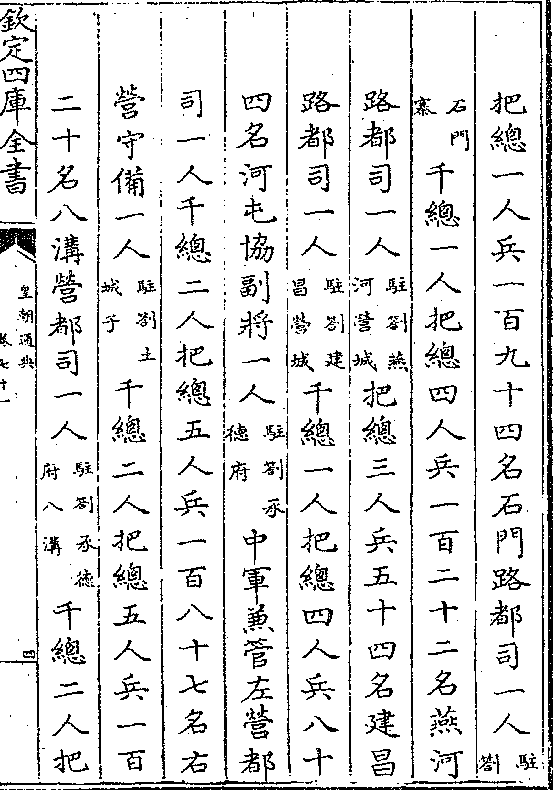 把總一人兵一百九十四名石門路都司一人駐劄
石門寨千總一人把總四人兵一百二十二名燕河
路都司一人駐劄燕河營城把總三人兵五十四名建昌
路都司一人駐劄建昌營城千總一人把總四人兵八十
四名河屯協副將一人駐劄承德府中軍兼管左營都
司一人千總二人把總五人兵一百八十七名右
營守備一人駐劄土城子千總二人把總五人兵一百
二十名八溝營都司一人駐劄承德府八溝千總二人把
欽定四庫全書
皇朝通典
卷七十
四